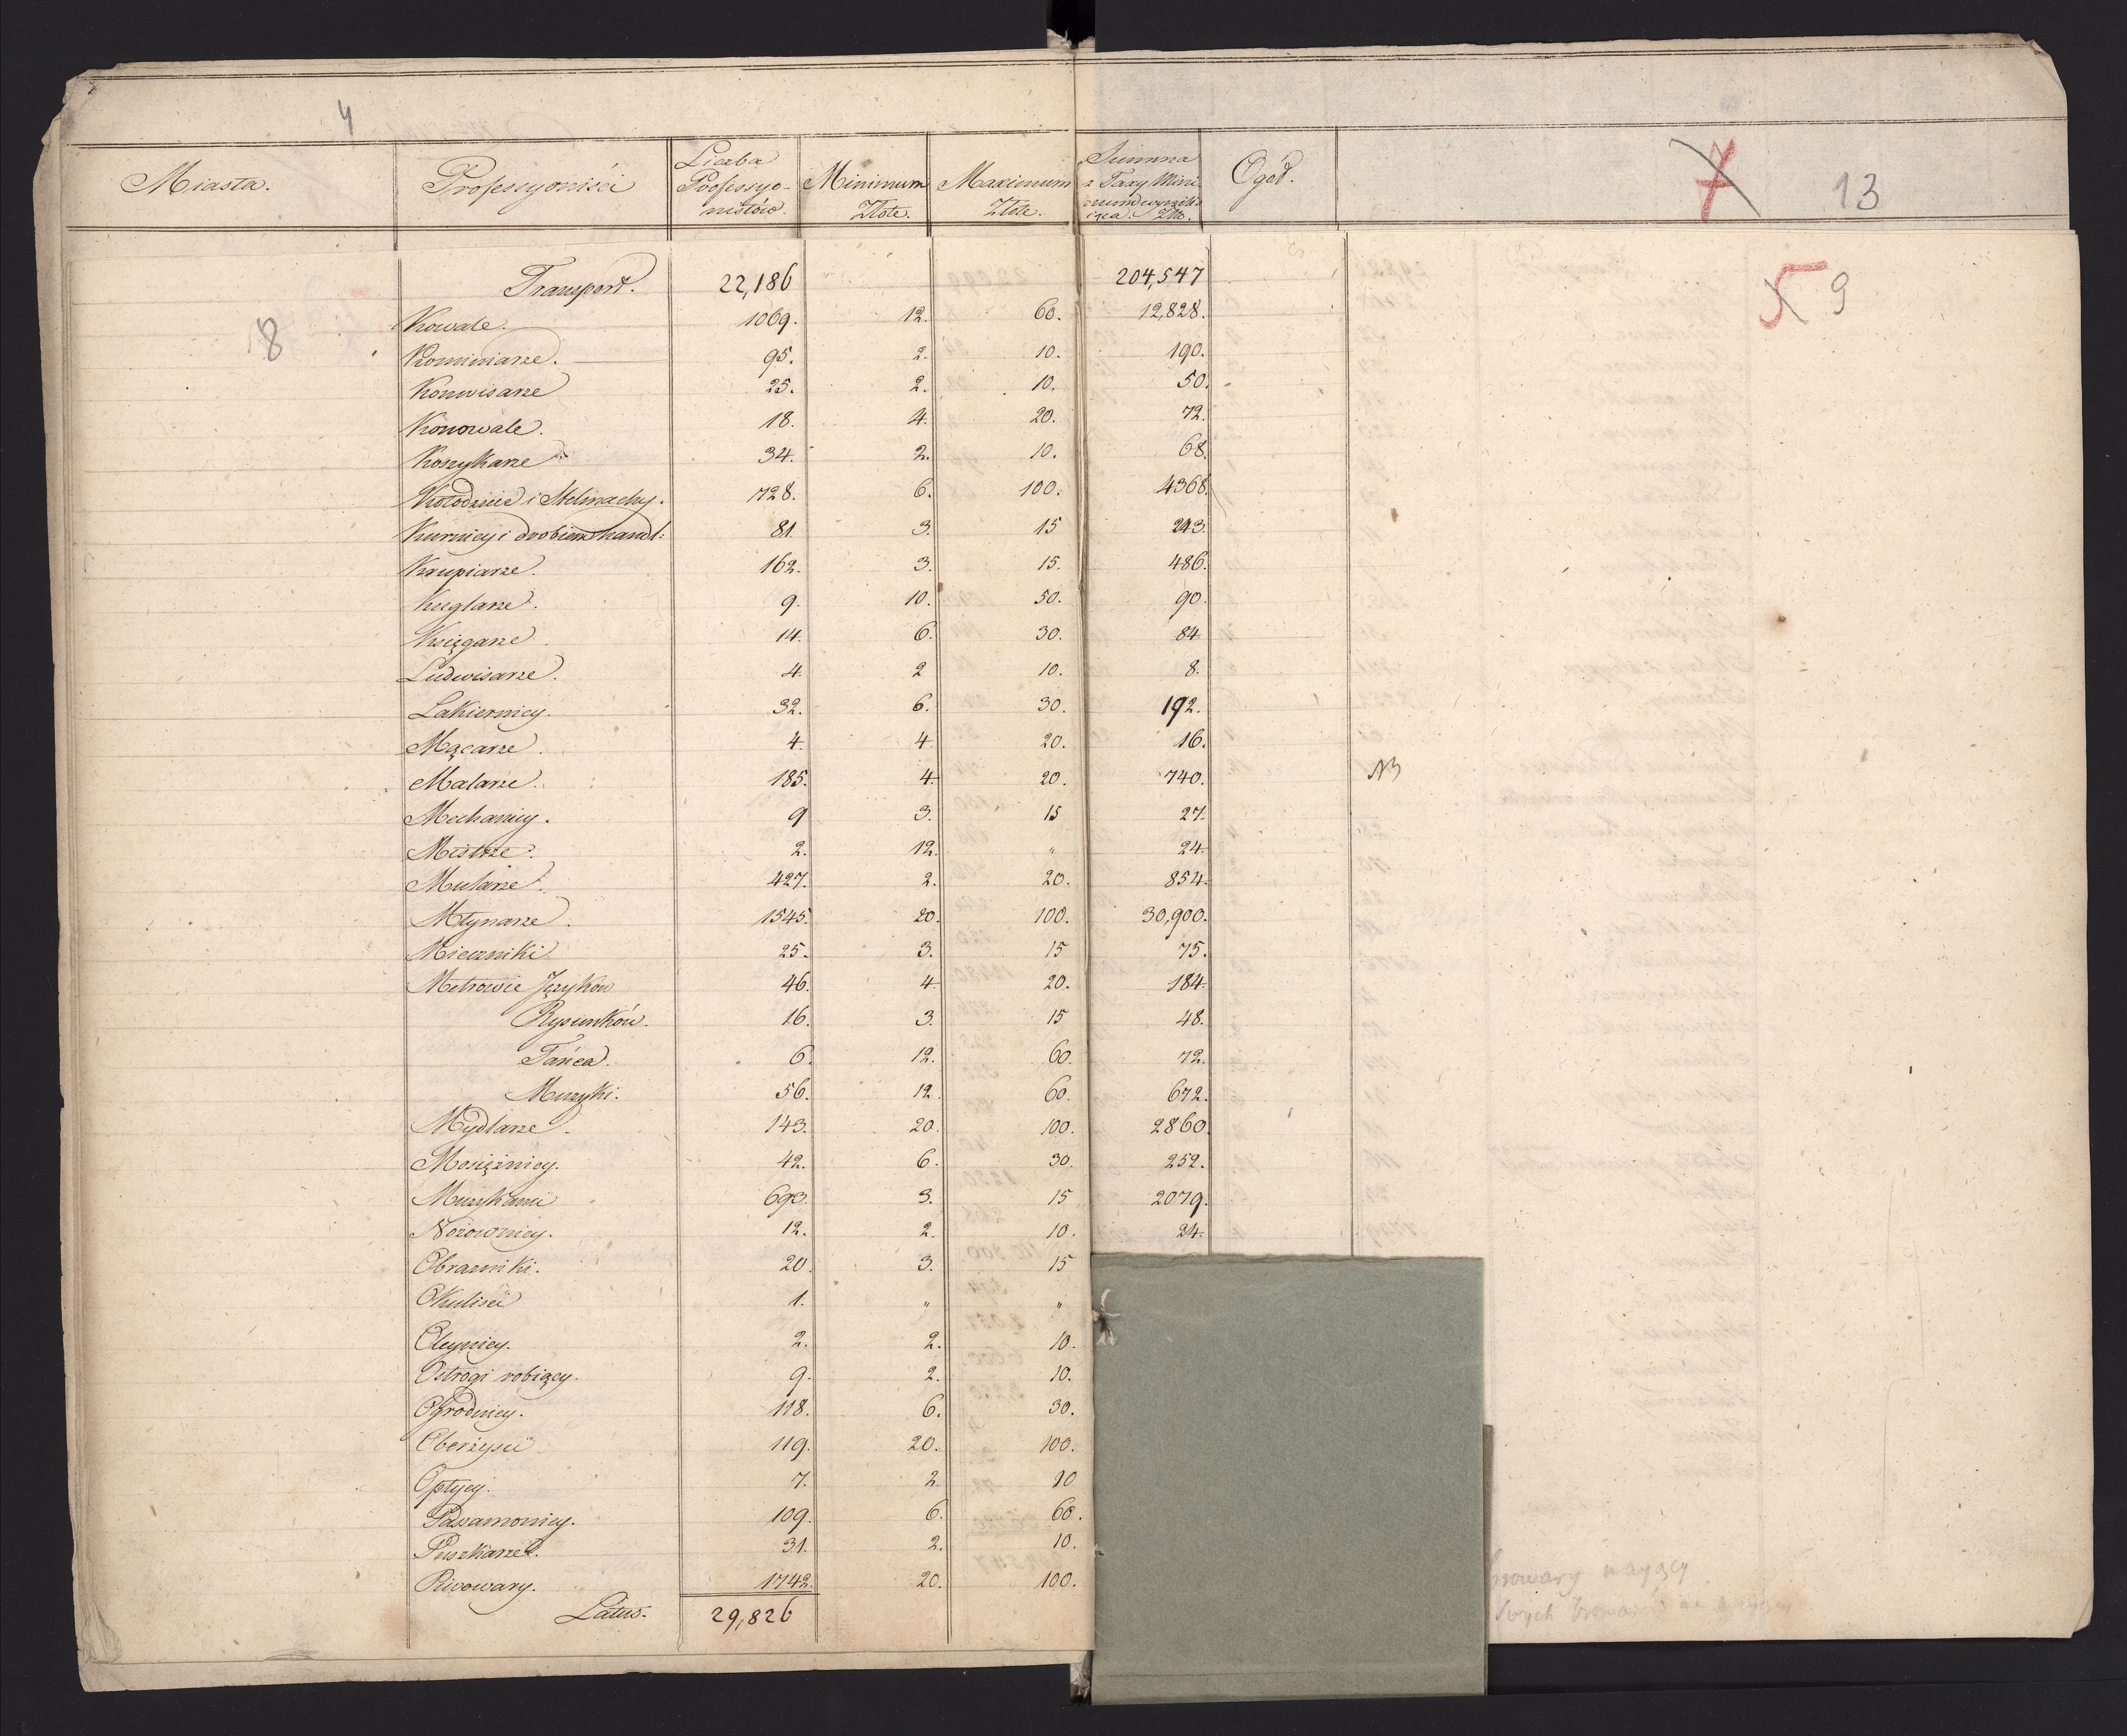 4
Miasta. Professyoniści Liczba Professyo- nistów. Minimum Złote. Maximum Złote. Summa z Taxy Mini mum wynika iąca. Złto. Ogół. 7 13
Transport. 22,186 204,547 5 9
8
Kowale. 1069. 12. 60. 12,828.
Kominiarze. 95. 2. 10. 190.
Konwisarze 25. 2. 10. 50.
Konowale. 18. 4. 20. 72.
Koszykarze 34. 2. 10. 68.
Kołodzieie i Stelmachy. 728. 6. 100. 4368.
Kurnicy i drobiem handl: 81. 3. 15 243.
Krupiarze. 162. 3. 15. 486.
Kuglarze. 9. 10. 50. 90.
Księgarze. 14. 6. 30. 84
Ludwisarze. 4. 2 10. 8.
Lakiernicy. 32. 6. 30. 192.
Mącarze. 4. 4 20. 16.
Malarze. 185. 4. 20. 740. NB
Mechanicy. 9 3. 15 27.
Mistrze. 2. 12. " 24.
Mularze. 427. 2. 20. 854.
Młynarze. 1545. 20. 100. 30,900.
Mieczniki. 25. 3. 15 75.
Metrowie Języków 46. 4 20. 184.
Rysunków. 16. 3. 15 48.
Tańca. 6. 12. 60. 72.
Muzyki. 56. 12. 60. 672.
Mydlarze. 143. 20. 100. 2860.
Mosiężnicy. 42. 6. 30. 252.
Muzykami 693. 3. 15 2079.
Nożownicy. 12. 2. 10. 24.
Obrazniki. 20. 3. 15
Okuliści 1. " "
Oleynicy. 2. 2. 10.
Ostrogi robiący. 9. 2. 10.
Ogrodnicy. 118. 6. 30.
Oberżyści 119. 20. 100.
Optycy. 7. 2. 10
Passamonicy. 109. 6. 60.
Puszkarze. 31. 2. 10.
Piwowary. 1742. 20. 100.
Latus. 29,826